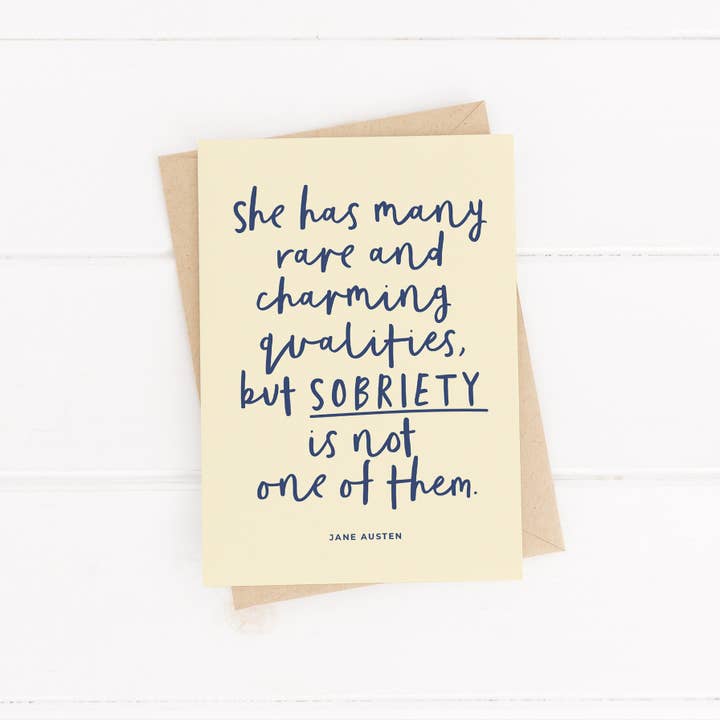 she has many
rare and
charming
qualities,
but SOBRIETY
is not
one of them.
JANE AUSTEN